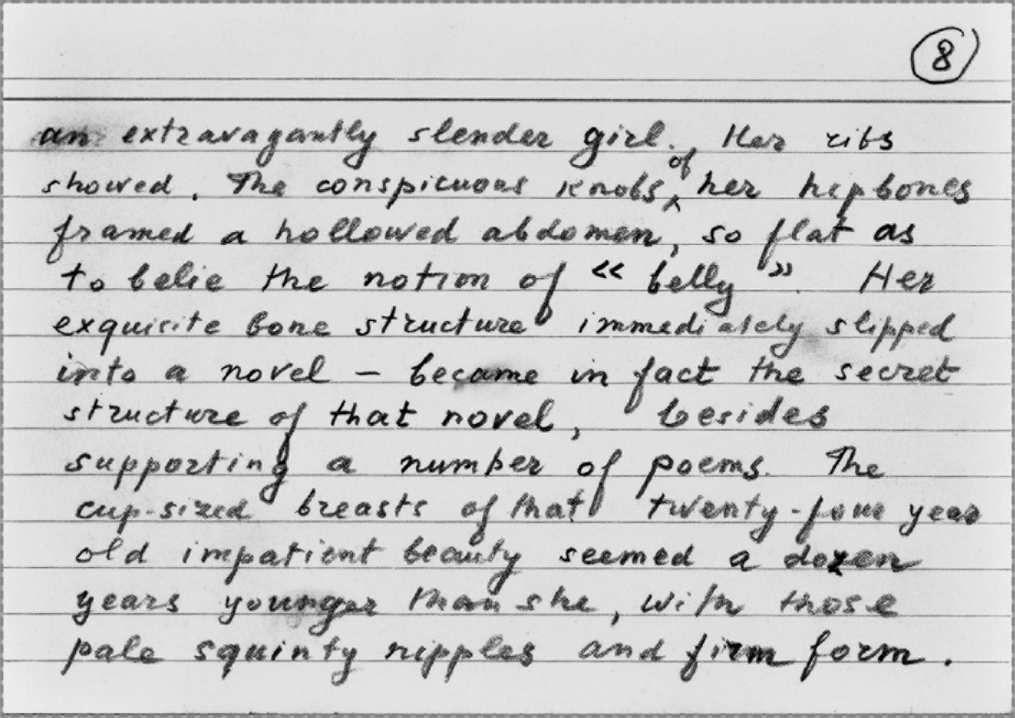 8
an extravagantly slender girl. Her ribs
showed. The conspicuous knobs of her hipbones
framed a hollowed abdomen, so flat as
to belie the notion of « belly ». Her
exquisite bone structure immediately slipped
into a novel – became in fact the secret
structure of that novel, besides
supporting a number of poems. The
cup-sized breasts of that twenty-four year
old impatient beauty seemed a dozen
years younger than she, with those
pale squinty nipples and firm form.